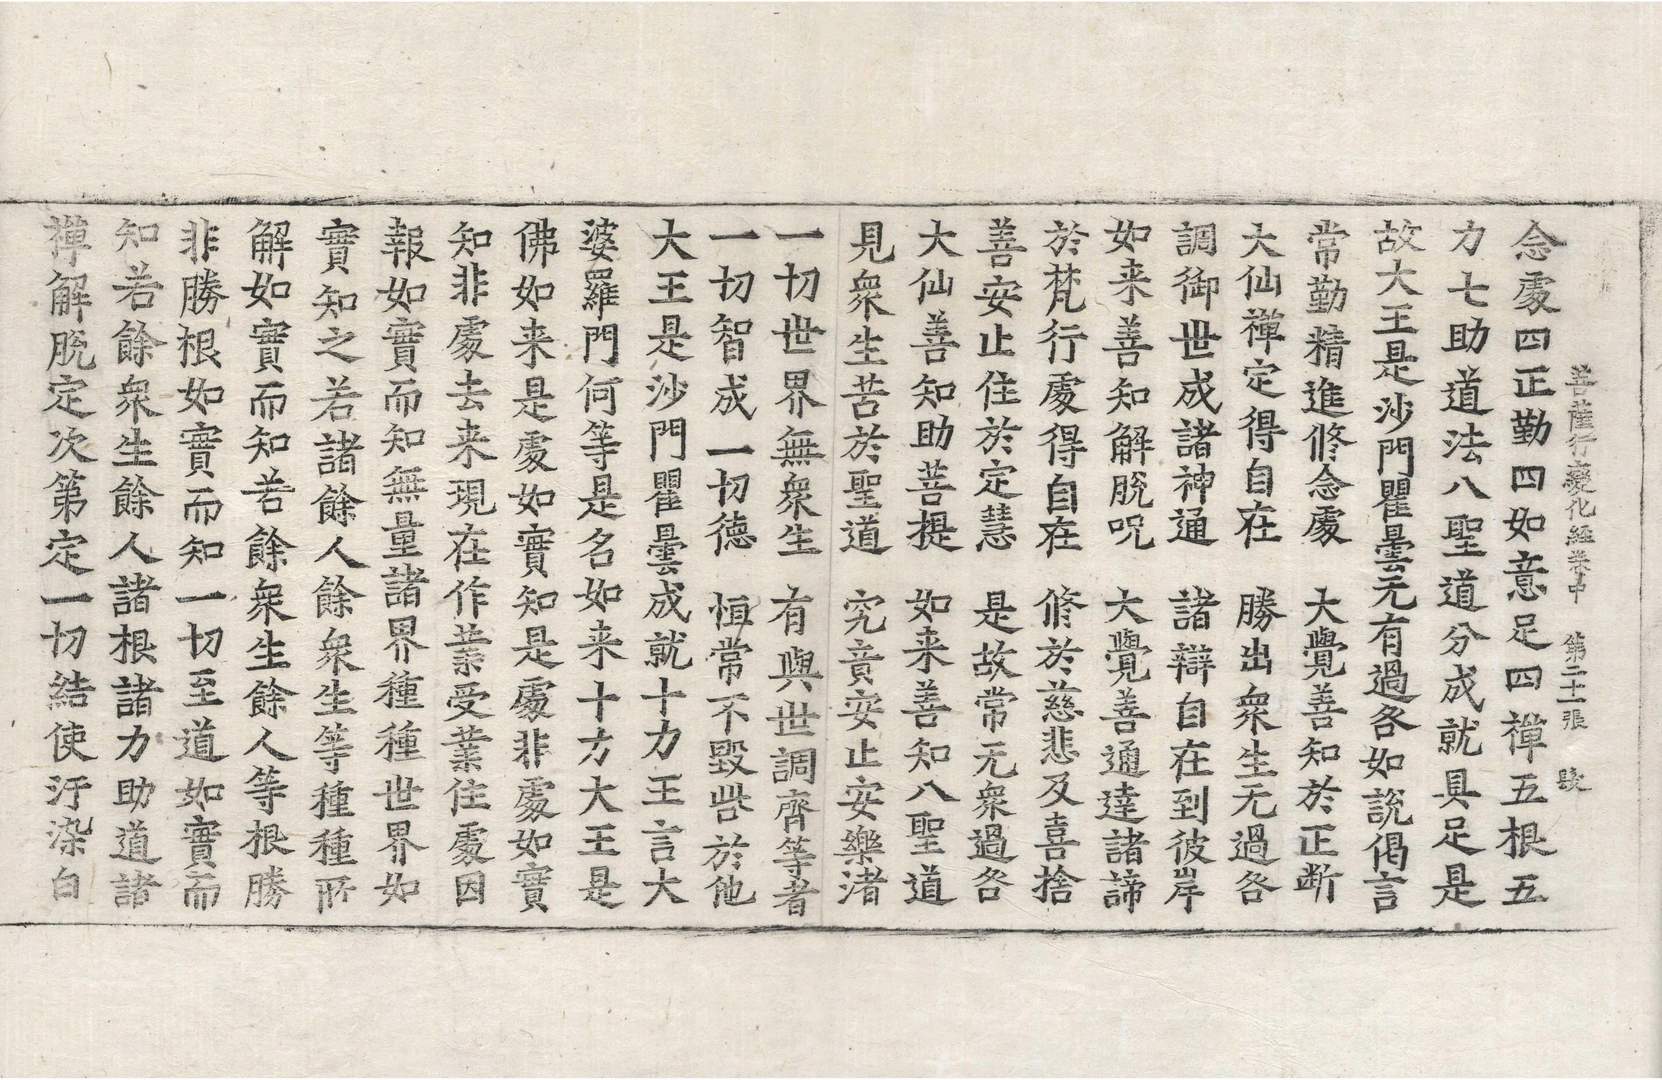 菩薩行變化經卷中　第二十一張　談
念處四正勤四如意足四禪五根五
力七助道法八聖道分成就具足是
故大王是沙門瞿曇无有過咎如說偈言
常勤精進修念處　大覺善知於正斷
大仙禪定得自在　勝出衆生无過咎
調御世成諸神通　諸辯自在到彼岸
如来善知解脫呪　大覺善通達諸諦
於梵行處得自在　脩於慈悲及喜捨
善安止住於定慧　是故常无衆過咎
大仙善知助菩提　如来善知八聖道
見衆生苦於聖道　究竟安止安樂渚
一切世界無衆生　有與世調齊等者
一切智成一切德　恒常不毀呰於他
大王是沙門瞿曇成就十力王言大
婆羅門何等是名如来十力大王是
佛如来是處如實知是處非處如實
知非處去来現在作業受業住處因
報如實而知無量諸界種種世界如
實知之若諸餘人餘衆生等種種所
解如實而知若餘衆生餘人等根勝
非勝根如實而知一切至道如實而
知若餘衆生餘人諸根諸力助道諸
禪解脫定次第定一切結使汙染白